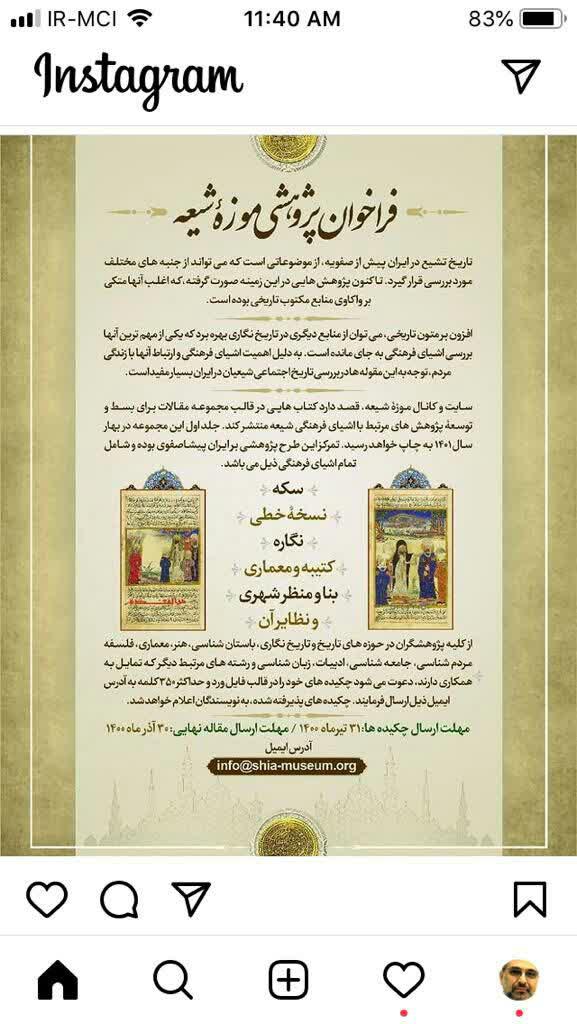 IR-MCI
11:40 AM
83%
Instagram
فراخوان پژوهشی موزهٔ شیعه
تاریخ تشیع در ایران پیش از صفویه، از موضوعاتی است که می تواند از جنبه های مختلف
مورد بررسی قرار گیرد. تاکنون پژوهش هایی در این زمینه صورت گرفته، که اغلب آنها متکی
بر واکاوی منابع مکتوب تاریخی بوده است.
افزون بر متون تاریخی، می توان از منابع دیگری در تاریخ نگاری بهره برد که یکی از مهم ترین آنها
بررسی اشیای فرهنگی به جای مانده است. به دلیل اهمیت اشیای فرهنگی و ارتباط آنها با زندگی
مردم، توجه به این مقوله ها در بررسی تاریخ اجتماعی شیعیان در ایران بسیار مفید است.
سایت و کانال موزهٔ شیعه، قصد دارد کتاب هایی در قالب مجموعه مقالات برای بسط و
توسعهٔ پژوهش های مرتبط با اشیای فرهنگی شیعه منتشر کند. جلد اول این مجموعه در بهار
سال ۱۴۰۱ به چاپ خواهد رسید. تمرکز این طرح پژوهشی بر ایران پیشاصفوی بوده و شامل
تمام اشیای فرهنگی ذیل می باشد.
سکه
نسخهٔ خطی
نگاره
کتیبه و معماری
بنا و منظر شهری
و نظایر آن
از کلیه پژوهشگران در حوزه های تاریخ و تاریخ نگاری، باستان شناسی، هنر، معماری، فلسفه
مردم شناسی، جامعه شناسی، ادبیات، زبان شناسی و رشته های مرتبط دیگر که تمایل به
همکاری دارند، دعوت می شود چکیده های خود را در قالب فایل ورد و حداکثر ۳۵۰ کلمه به آدرس
ایمیل ذیل ارسال فرمایند. چکیده های پذیرفته شده، به نویسندگان اعلام خواهد شد.
مهلت ارسال چکیده ها: ۳۱ تیرماه ۱۴۰۰ / مهلت ارسال مقاله نهایی: ۳۰ آذر ماه ۱۴۰۰
آدرس ایمیل
info@shia-museum.org